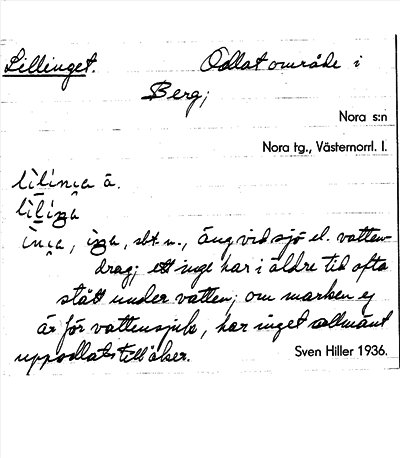 Lillinget. Odlat område i
Berg;
Nora s:n
Nora tg., Västernorrl. l.
lìlìnıa ä.
lìlìŋa
ìnıa, ìŋa, sbt. n., äng vid sjö el. vatten-
drag; ett inge har i äldre tid ofta
stått under vatten; om marken ej
är för vattensjuk, har inget allmänt
uppodlats till åker.
Sven Hiller 1936.